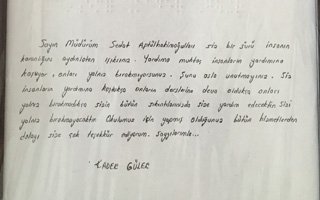 Sayın Müdürüm Sedat siz bir sürü insanın
karanlığını aydınlatan ışıksınız. Yardıma muhtaç insanların yardımına
koşuyor, onları yalnız bırakmıyorsunuz. Şunu asla unutmayınız. Siz
insanların yardımına koştukça onların derslerine deva oldukça onları
yalnız bırakmadıkça sizin bütün sıkıntılarınızda size yardım edecektir. Sizi
yalnız bırakmayacaktır. Okulumuz için yapmış olduğunuz bütün hizmetlerden
dolayı size çok teşekkür ediyorum. Saygılarımla...
KADER GÜLER